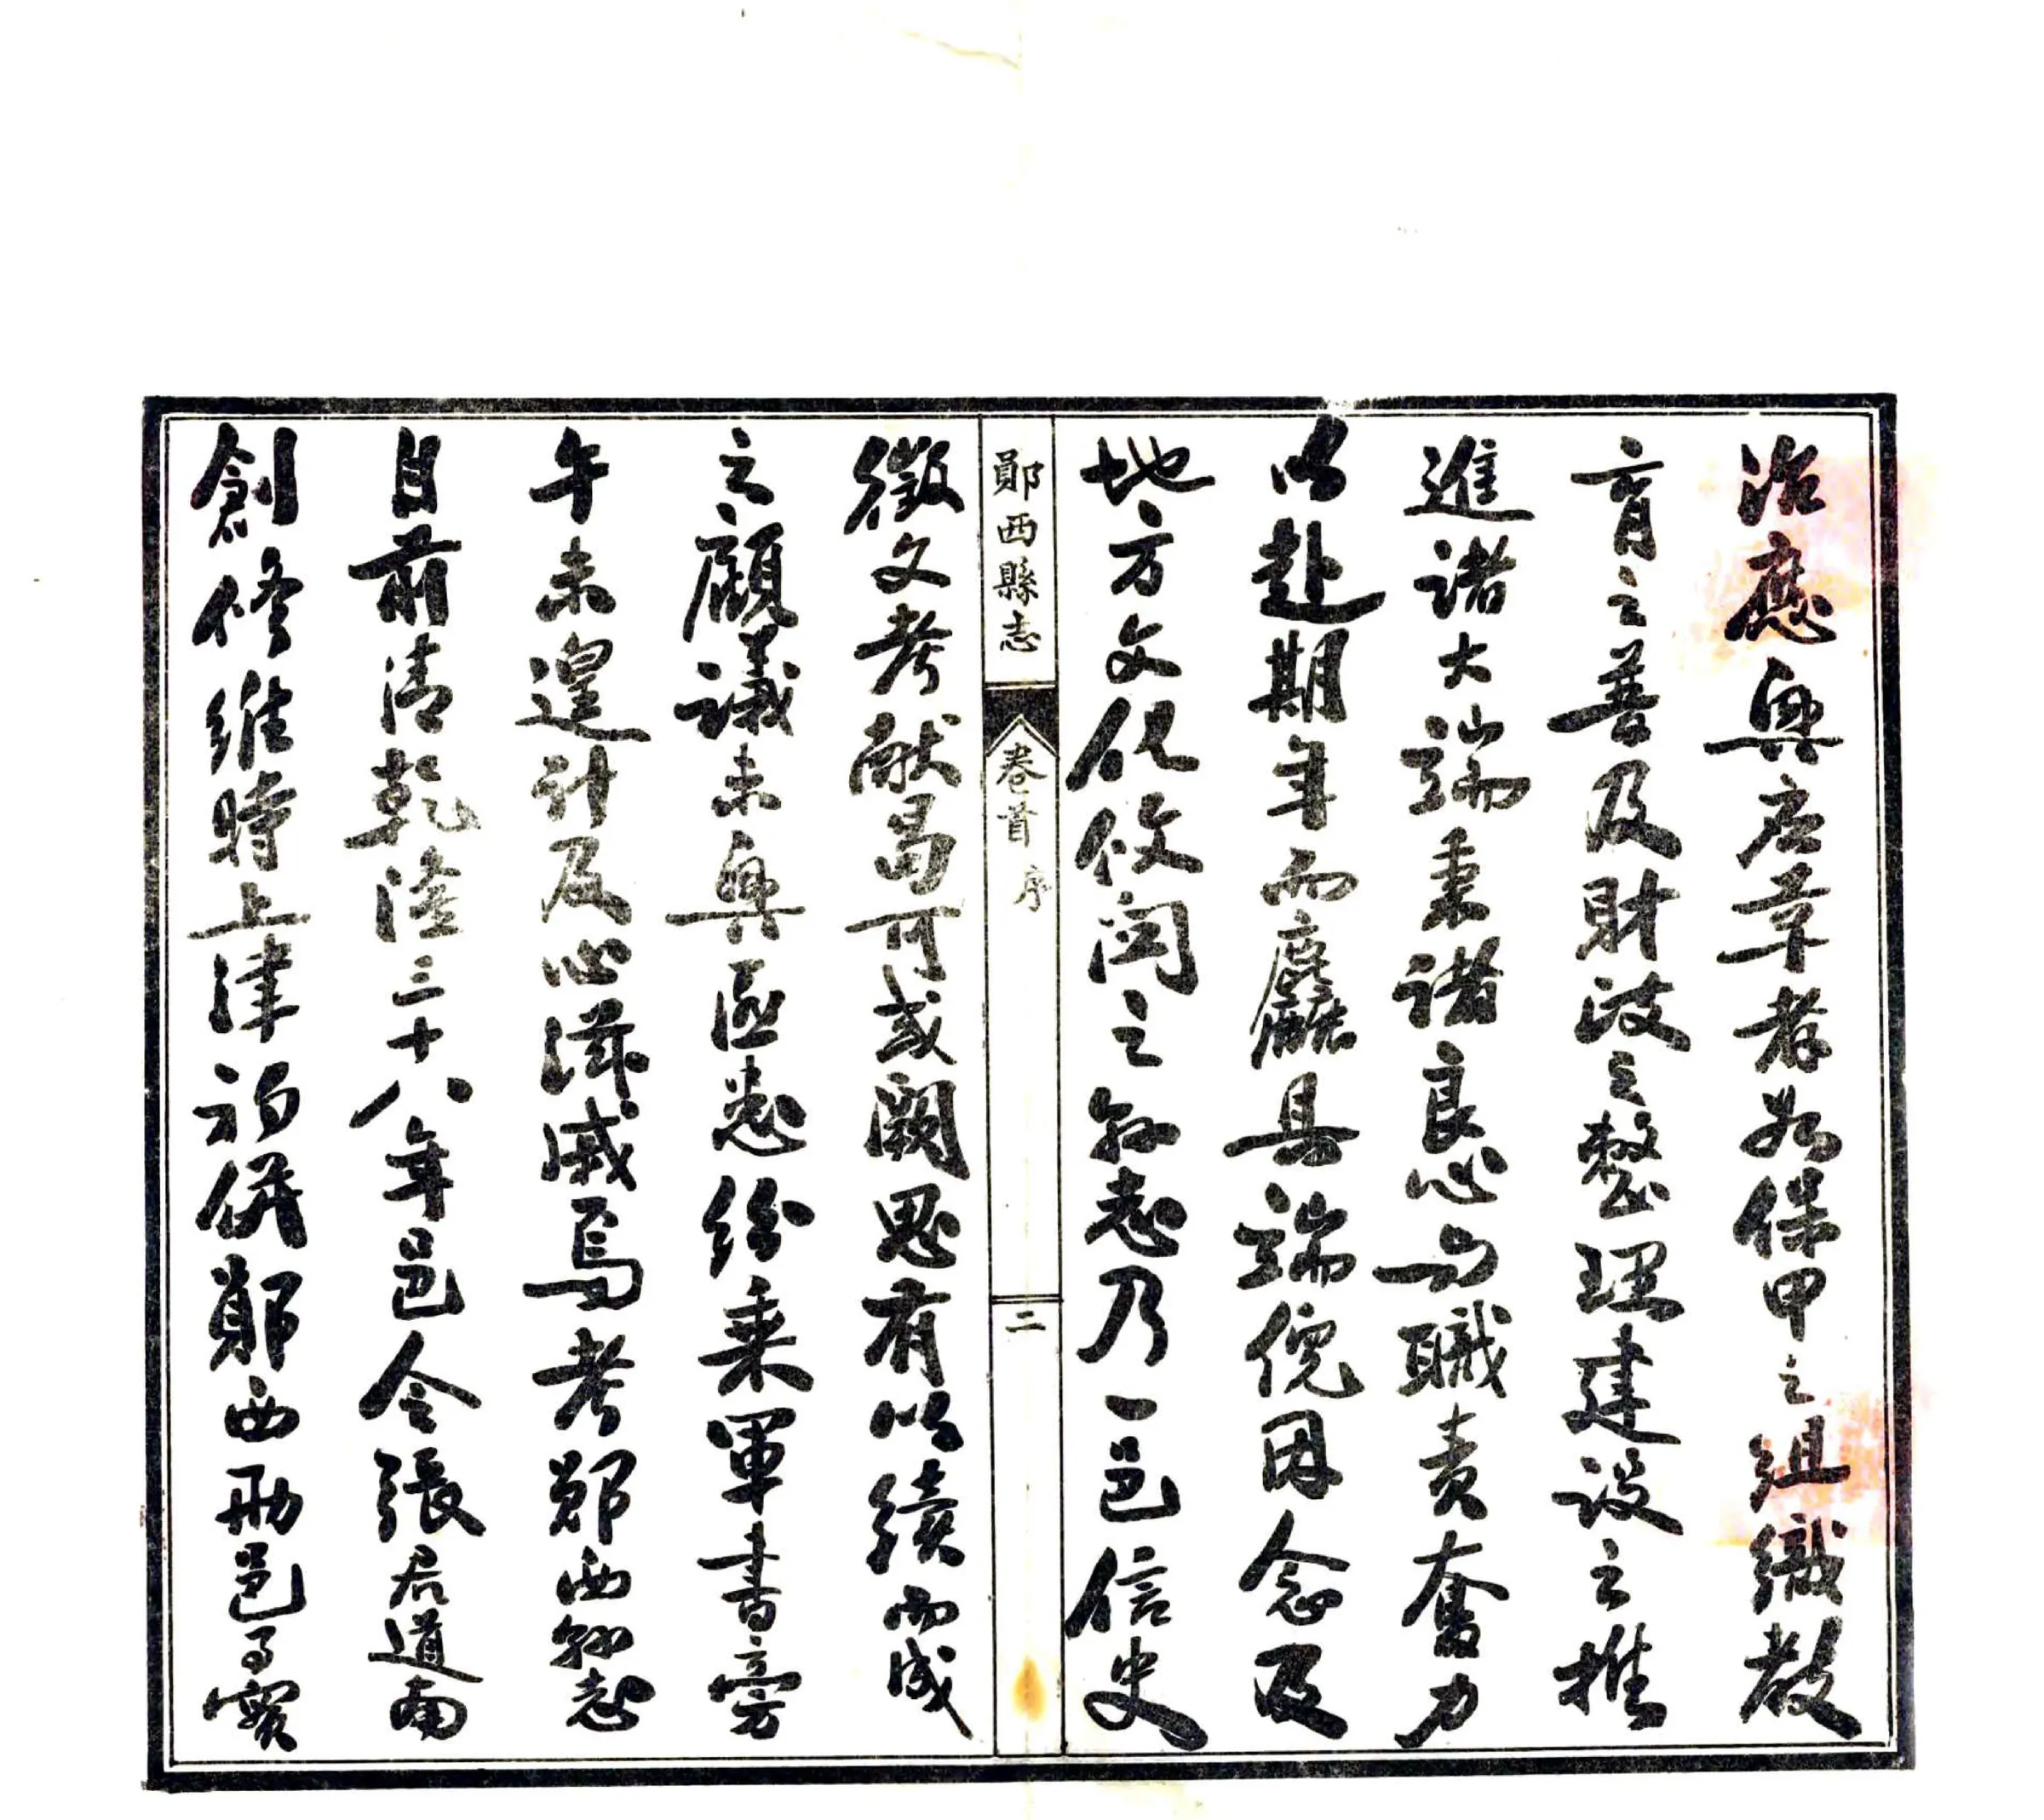 治應興應革者如保甲之組織教
育之普及財政之整理建設之推
進諸大端秉諸良心與職責奮力
以赴期年而麤具端倪因念及
地方文化攸關之縣志乃一邑信史
鄖西縣志
卷首 序
二
徵文考獻曷可或闕思有以續而成
之顧議未興匪患紛乘軍書旁
午未遑計及心滋戚焉考鄖西縣志
自前清乾隆三十八年邑令張君道南
創修維時上津初併鄖西兩邑可實